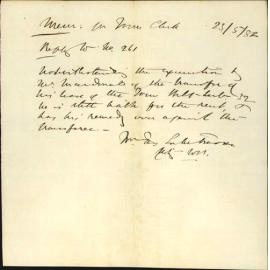 Memo: for Town Clerk 23/5/82
Reply to No 261
Notwithstanding the execution by
Mr. of the transfer of
his lease of the Town
he is still liable for the rent, &
has his remedy over against the
transferee —
Wm